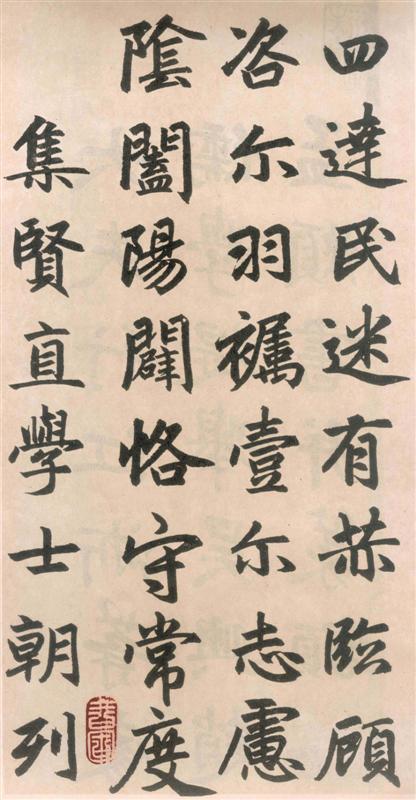 四達民迷有赫臨顧
咨尒羽壹尒志慮
陰闔陽闢恪守常度
集賢直學士朝列